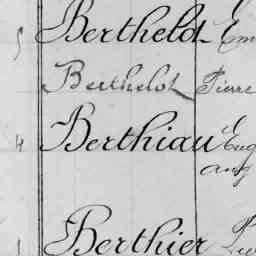 5 Berthelot Em
Berthelot Pierre
4 Berthiau Eug
aug
Berthier